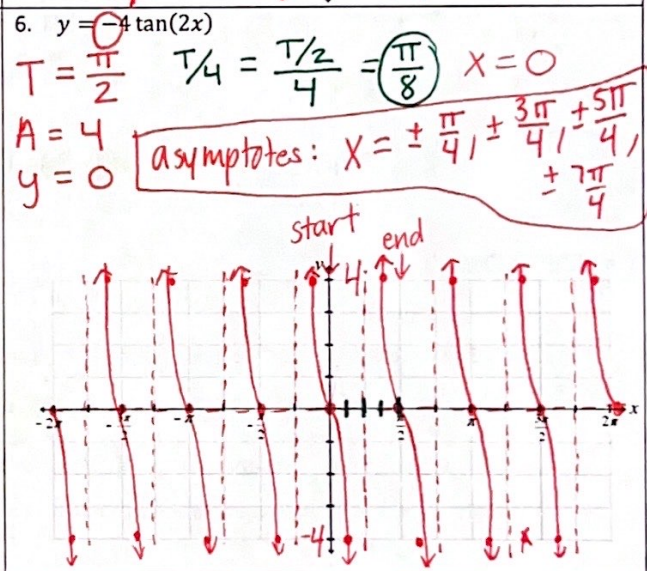 6. y = -4 tan(2x)
T = π/2 T/4 = T/2/4 = π/8 x = 0
A = 4
asymptotes: x = ± π/4, ± 3π/4, ± 5π/4, ± 7π/4
y = 0
start end
y 4
-2π -π -π/2 π/2 π 2π x
-4